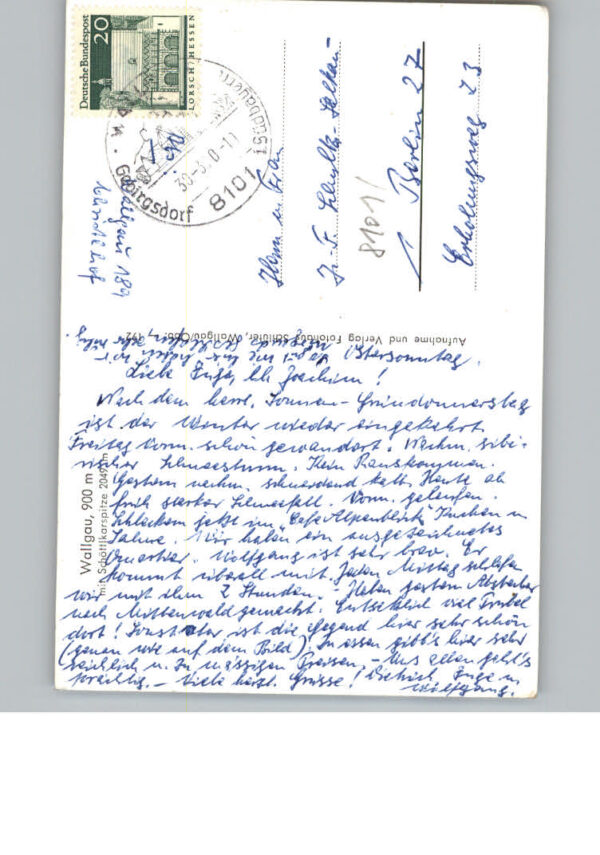 Deutsche Bundespost
20
LORSCH/HESSEN
Gebirgsdorf
8101
Wallgau 189
Herrn u. Frau
8101/
1 Berlin 27
Erholungsweg 73
Aufnahme und Verlag Fotohaus Schluier, Wallgau/Obb.
Wallgau, 900 m
mit Schöttlkarspitze 2049 m
Ostersonntag.
Liebe Inge, lb. Joachim!
Nach dem herrl. Sonnen-Gründonnerstag
ist der Winter wieder eingekehrt.
Freitag Vorm. schön gewandert. Nachm. sibi-
rischer Schneesturm. Kein Rauskommen.
Gestern nachm. schneidend kalt. Heute ab
früh starker Schneefall. Vorm. gelaufen.
Schlecken jetzt im "Café Alpenblick" Kuchen m.
Sahne. Wir haben ein ausgezeichnetes
Quartier. Wolfgang ist sehr brav. Er
kommt überall mit. Jeden Mittag schlafen
wir mit ihm 2 Stunden. Haben gestern Abstecher
nach Mittenwald gemacht. Entsetzlich viel Trubel
dort! Sonst aber ist die Gegend hier sehr schön
(genau wie auf dem Bild). Zu essen gibt's hier sehr
reichlich u. zu mässigen Preisen. – Uns allen geht's
prächtig. – Viele herzl. Grüsse! Inge u.
Wolfgang.